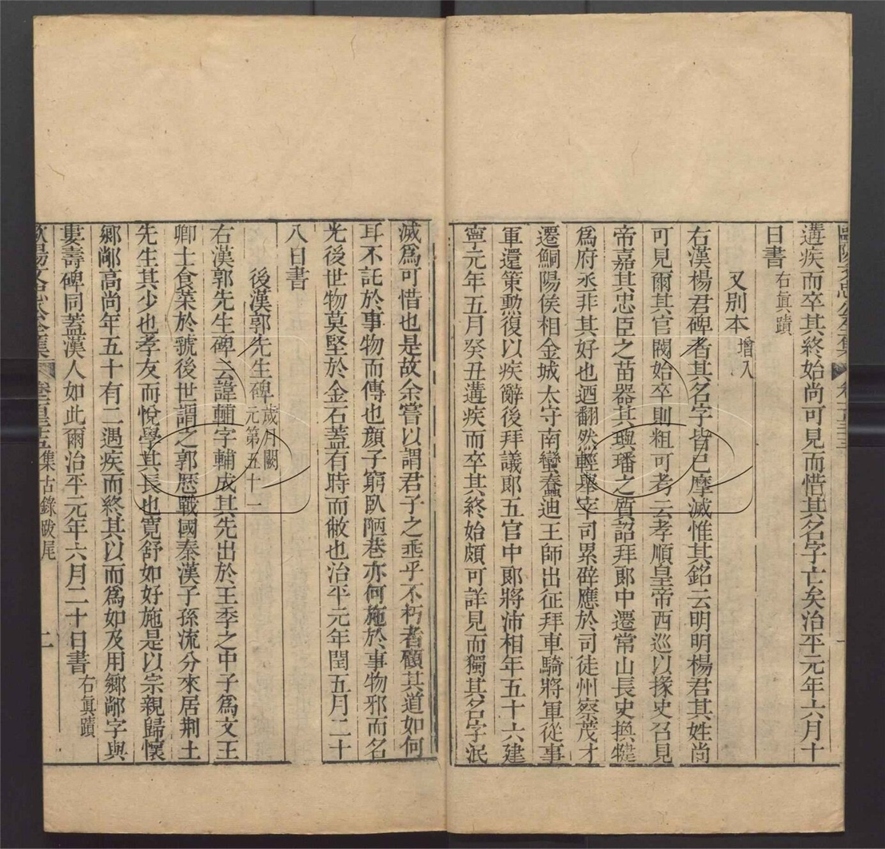 遘疾而卒其終始尚可見而惜其名字亡矣治平元年六月十
日書右眞蹟
又别本增入
右漢楊君碑者其名字皆已摩滅惟其銘云明明楊君其姓尚
可見爾其官閥始卒則粗可考云孝順皇帝西巡以掾史召見
帝嘉其忠臣之苗器其璵璠之質詔拜郎中遷常山長史換犍
爲府丞非其好也迺翻然輕舉宰司累辟應於司徒州察茂才
遷鮦陽侯相金城太守南蠻蠢迪王師出征拜車騎將軍從事
軍還策勳復以疾辭後拜議郎五官中郎將沛相年五十六建
寧元年五月癸丑遘疾而卒其終始頗可詳見而獨其名字泯
滅爲可惜也是故余嘗以謂君子之垂乎不朽者顧其道如何
耳不託於事物而傳也顏子窮臥陋巷亦何施於事物邪而名
光後世物莫堅於金石蓋有時而敝也治平元年閏五月二十
八日書
後漢郭先生碑歲月闕
元第五十一
右漢郭先生碑云諱輔字輔成其先出於王季之中子爲文王
卿士食菜於虢後世謂之郭歷戰國秦漢子孫流分來居荆土
先生其少也孝友而悅學其長也寬舒如好施是以宗親歸懷
鄉鄰高尚年五十有二遇疾而終其以而爲如及用鄉鄰字與
婁壽碑同蓋漢人如此爾治平元年六月二十日書右眞蹟
歐陽文忠公全集 集古錄跋尾 二